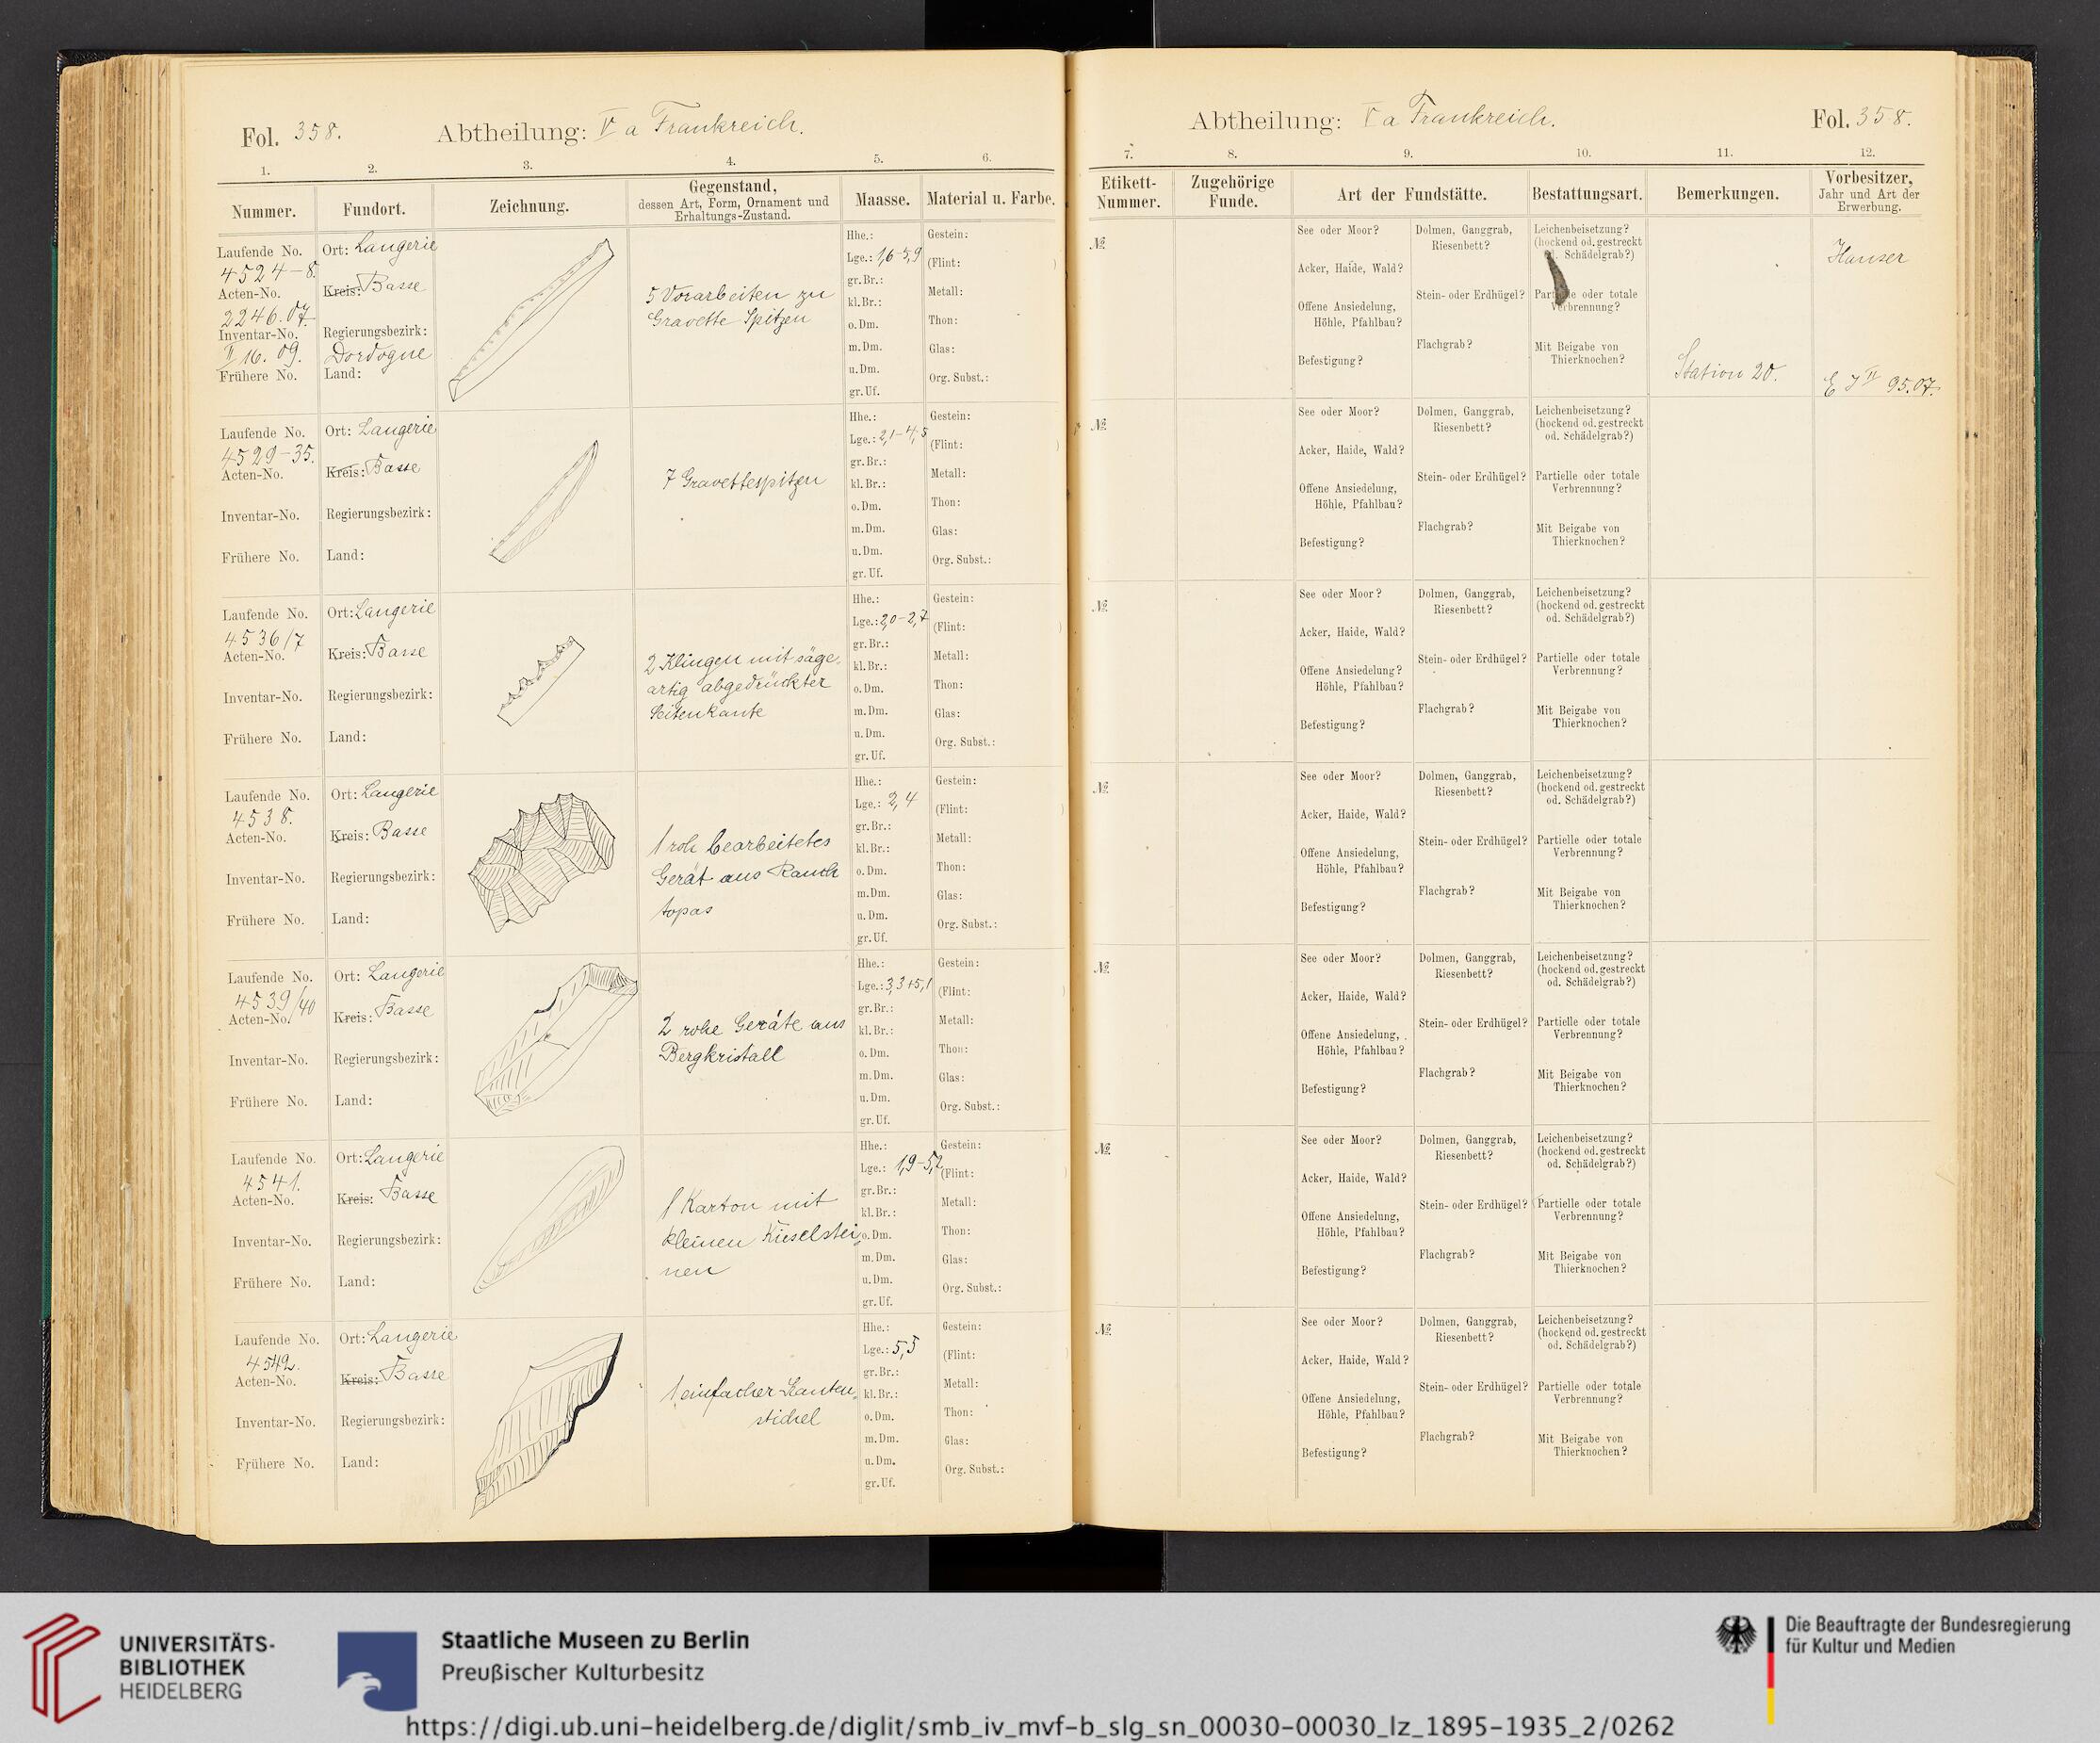 Fol. 358.
Abtheilung: V a Frankreich.
1. 2. 3. 4. 5. 6.
Nummer. Fundort. Zeichnung. Gegenstand, dessen Art, Form, Ornament und Erhaltungs-Zustand. Maasse. Material u. Farbe.
Laufende No. 4524-8.
Acten-No. 2246.07.
Inventar-No. II 16. 09.
Frühere No.
Ort: Laugerie
Kreis: Basse
Regierungsbezirk: Dordogne
Land:
5 Vorarbeiten zu
Gravette Spitzen
Hhe.:
Lge.: 1,6-5,9
gr. Br.:
kl. Br.:
o. Dm.
m. Dm.
u. Dm.
gr. Uf.
Gestein:
(Flint: )
Metall:
Thon:
Glas:
Org. Subst.:
Laufende No. 4529-35.
Acten-No.
Inventar-No.
Frühere No.
Ort: Laugerie
Kreis: Basse
Regierungsbezirk:
Land:
7 Gravettespitzen
Hhe.:
Lge.: 2,1-4,5
gr. Br.:
kl. Br.:
o. Dm.
m. Dm.
u. Dm.
gr. Uf.
Gestein:
(Flint:
Metall:
Thon:
Glas:
Org. Subst.:
Laufende No. 4536/7
Acten-No.
Inventar-No.
Frühere No.
Ort: Laugerie
Kreis: Basse
Regierungsbezirk:
Land:
2 Klingen mit säge-
artig abgedrückter
Seitenkante
Hhe.:
Lge.: 2,0-2,7
gr. Br.:
kl. Br.:
o. Dm.
m. Dm.
u. Dm.
gr. Uf.
Gestein:
(Flint: )
Metall:
Thon:
Glas:
Org. Subst.:
Laufende No. 4538.
Acten-No.
Inventar-No.
Frühere No.
Ort: Laugerie
Kreis: Basse
Regierungsbezirk:
Land:
1 roh bearbeitetes
Gerät aus Rauch
topas
Hhe.:
Lge.: 2,4
gr. Br.:
kl. Br.:
o. Dm.
m. Dm.
u. Dm.
gr. Uf.
Gestein:
(Flint: )
Metall:
Thon:
Glas:
Org. Subst.:
Laufende No. 4539/40
Acten-No.
Inventar-No.
Frühere No.
Ort: Laugerie
Kreis: Basse
Regierungsbezirk:
Land:
2 rohe Geräte aus
Bergkristall
Hhe.:
Lge.: 3,3+5,1
gr. Br.:
kl. Br.:
o. Dm.
m. Dm.
u. Dm.
gr. Uf.
Gestein:
(Flint: )
Metall:
Thon:
Glas:
Org. Subst.:
Laufende No. 4541.
Acten-No.
Inventar-No.
Frühere No.
Ort: Laugerie
Kreis: Basse
Regierungsbezirk:
Land:
1 Karton mit
kleinen Kieselstei
nen
Hhe.:
Lge.: 1,9-5,2
gr. Br.:
kl. Br.:
o. Dm.
m. Dm.
u. Dm.
gr. Uf.
Gestein:
(Flint:
Metall:
Thon:
Glas:
Org. Subst.:
Laufende No. 4542.
Acten-No.
Inventar-No.
Frühere No.
Ort: Laugerie
Kreis: Basse
Regierungsbezirk:
Land:
1 einfacher Kanten-
stichel
Hhe.:
Lge.: 5,5
gr. Br.:
kl. Br.:
o. Dm.
m. Dm.
u. Dm.
gr. Uf.
Gestein:
(Flint:
Metall:
Thon:
Glas:
Org. Subst.:
Abtheilung: V a Frankreich.
Fol. 358.
7. 8. 9. 10. 11. 12.
Etikett-Nummer. Zugehörige Funde. Art der Fundstätte. Bestattungsart. Bemerkungen. Vorbesitzer, Jahr und Art der Erwerbung.
№
See oder Moor?
Acker, Haide, Wald?
Offene Ansiedelung,
Höhle, Pfahlbau?
Befestigung?
Dolmen, Ganggrab,
Riesenbett?
Stein- oder Erdhügel?
Flachgrab?
Leichenbeisetzung?
(hockend od. gestreckt
Schädelgrab?)
oder totale
Verbrennung?
Mit Beigabe von
Thierknochen?
Station 20.
Hauser
E J II 95.07.
№
See oder Moor?
Acker, Haide, Wald?
Offene Ansiedelung,
Höhle, Pfahlbau?
Befestigung?
Dolmen, Ganggrab,
Riesenbett?
Stein- oder Erdhügel?
Flachgrab?
Leichenbeisetzung?
(hockend od. gestreckt
od. Schädelgrab?)
Partielle oder totale
Verbrennung?
Mit Beigabe von
Thierknochen?
№
See oder Moor?
Acker, Haide, Wald?
Offene Ansiedelung?
Höhle, Pfahlbau?
Befestigung?
Dolmen, Ganggrab,
Riesenbett?
Stein- oder Erdhügel?
Flachgrab?
Leichenbeisetzung?
(hockend od. gestreckt
od. Schädelgrab?)
Partielle oder totale
Verbrennung?
Mit Beigabe von
Thierknochen?
№
See oder Moor?
Acker, Haide, Wald?
Offene Ansiedelung,
Höhle, Pfahlbau?
Befestigung?
Dolmen, Ganggrab,
Riesenbett?
Stein- oder Erdhügel?
Flachgrab?
Leichenbeisetzung?
(hockend od. gestreckt
od. Schädelgrab?)
Partielle oder totale
Verbrennung?
Mit Beigabe von
Thierknochen?
№
See oder Moor?
Acker, Haide, Wald?
Offene Ansiedelung,
Höhle, Pfahlbau?
Befestigung?
Dolmen, Ganggrab,
Riesenbett?
Stein- oder Erdhügel?
Flachgrab?
Leichenbeisetzung?
(hockend od. gestreckt
od. Schädelgrab?)
Partielle oder totale
Verbrennung?
Mit Beigabe von
Thierknochen?
№
See oder Moor?
Acker, Haide, Wald?
Offene Ansiedelung,
Höhle, Pfahlbau?
Befestigung?
Dolmen, Ganggrab,
Riesenbett?
Stein- oder Erdhügel?
Flachgrab?
Leichenbeisetzung?
(hockend od. gestreckt
od. Schädelgrab?)
Partielle oder totale
Verbrennung?
Mit Beigabe von
Thierknochen?
№
See oder Moor?
Acker, Haide, Wald?
Offene Ansiedelung,
Höhle, Pfahlbau?
Befestigung?
Dolmen, Ganggrab,
Riesenbett?
Stein- oder Erdhügel?
Flachgrab?
Leichenbeisetzung?
(hockend od. gestreckt
od. Schädelgrab?)
Partielle oder totale
Verbrennung?
Mit Beigabe von
Thierknochen?
UNIVERSITÄTS-
BIBLIOTHEK
HEIDELBERG
Staatliche Museen zu Berlin
Preußischer Kulturbesitz
Die Beauftragte der Bundesregierung
für Kultur und Medien
https://digi.ub.uni-heidelberg.de/diglit/smb_iv_mvf-b_slg_sn_00030-00030_lz_1895-1935_2/0262